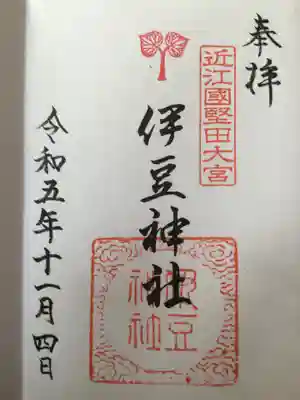 奉拝
近江國堅田大宮
伊豆神社
伊豆
神社
令和五年十一月四日